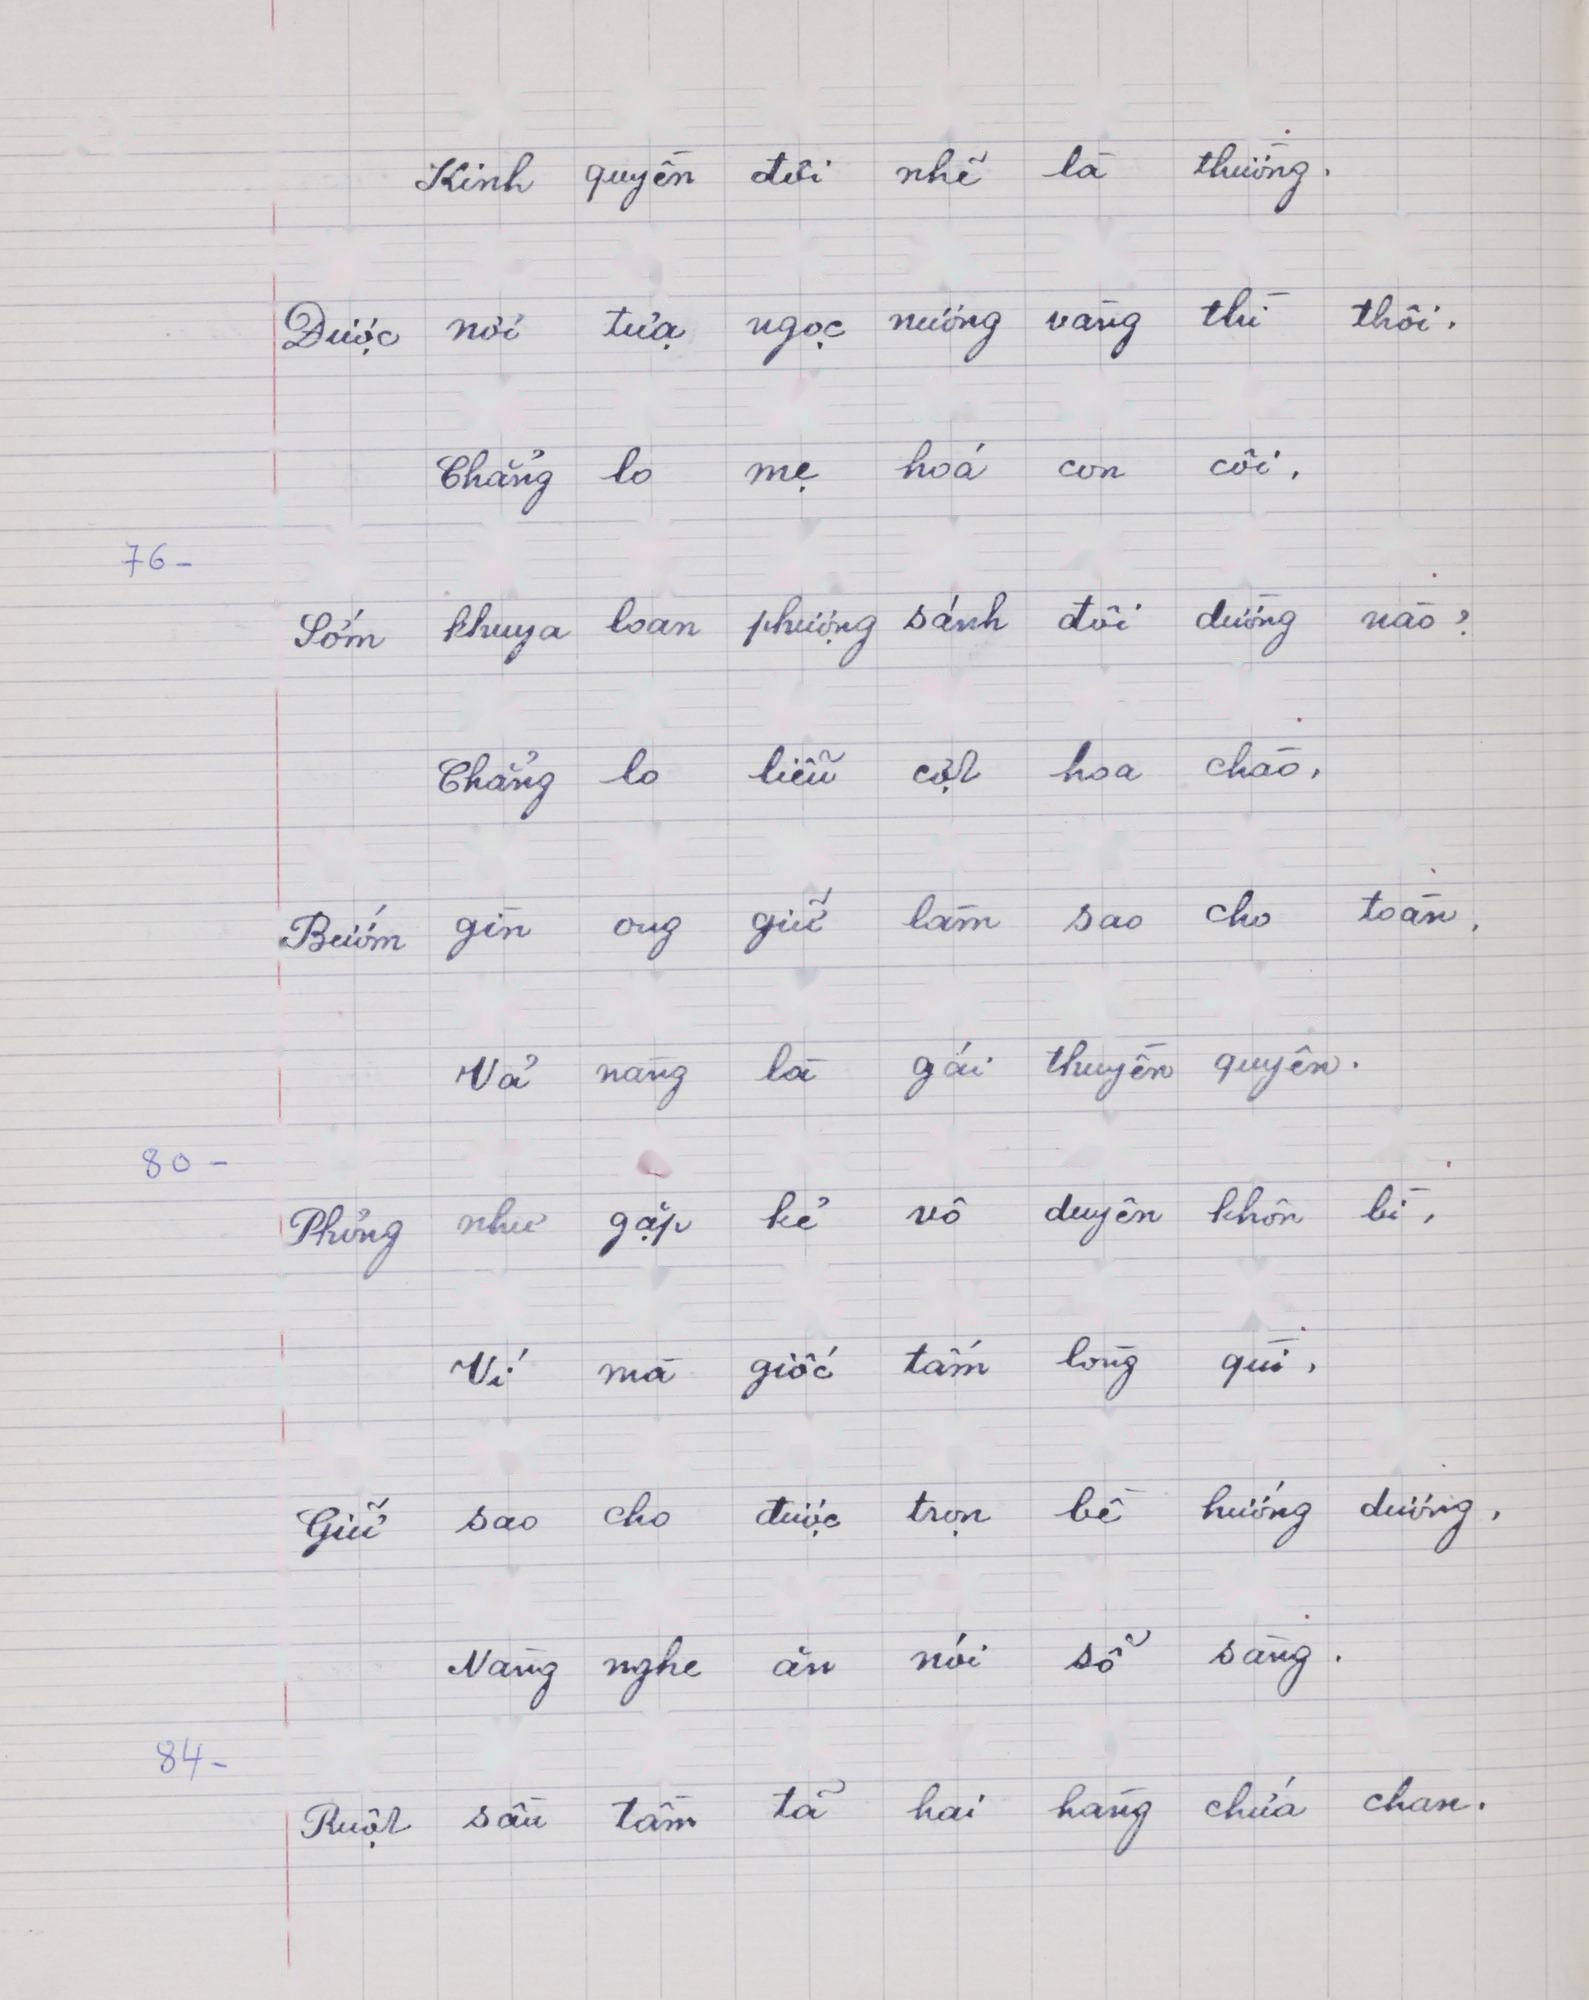 Kinh quyền đôi nhẽ là thường.
Được nơi tựa ngọc nương vàng thì thôi.
Chẳng lo mẹ hoá con côi,
76-
Sớm khuya loan phượng sánh đôi dường nào?
Chẳng lo liễu cợt hoa chào,
Bướm gìn ong giữ làm sao cho toàn,
Vả nàng là gái thuyền quyên.
80-
Phỏng như gặp kẻ vô duyên khôn bì,
Ví mà giốc tấm lòng quì,
Giữ sao cho được trọn bề hướng dương,
Nàng nghe ăn nói sỗ sàng.
84-
Ruột sầu tầm tã hai hàng chứa chan.